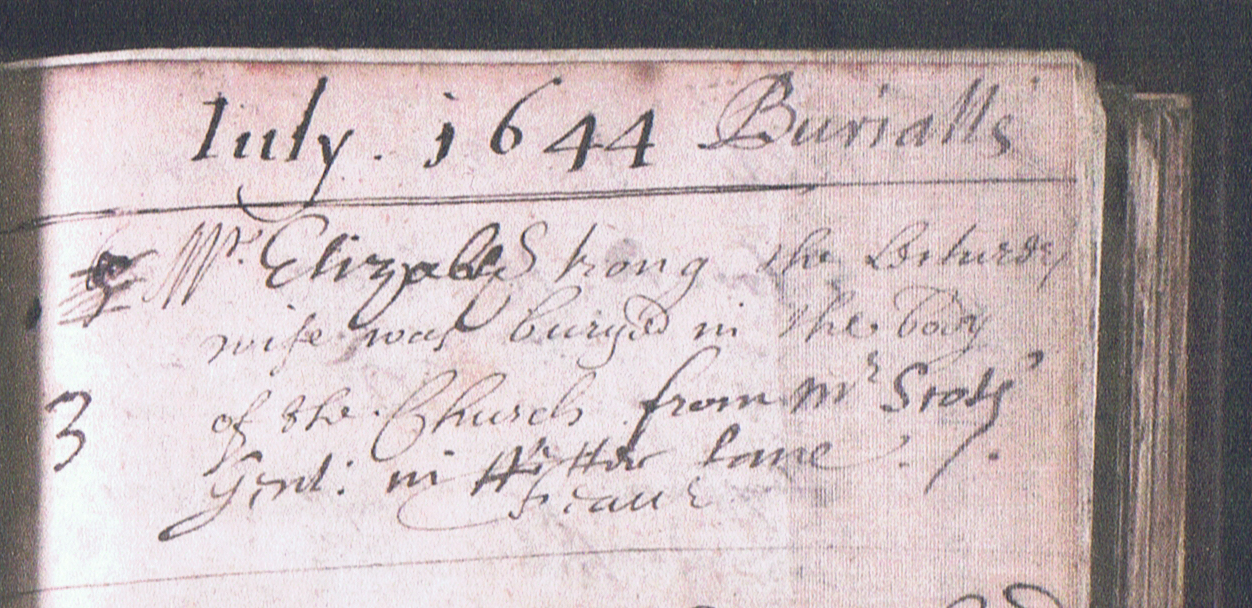 Iuly. 1644 Burialls
Mrs. Elizabeth Strong the
wife was buryed in the body
3 of the Church from Mr Scots
Gent: in ffetter lane.